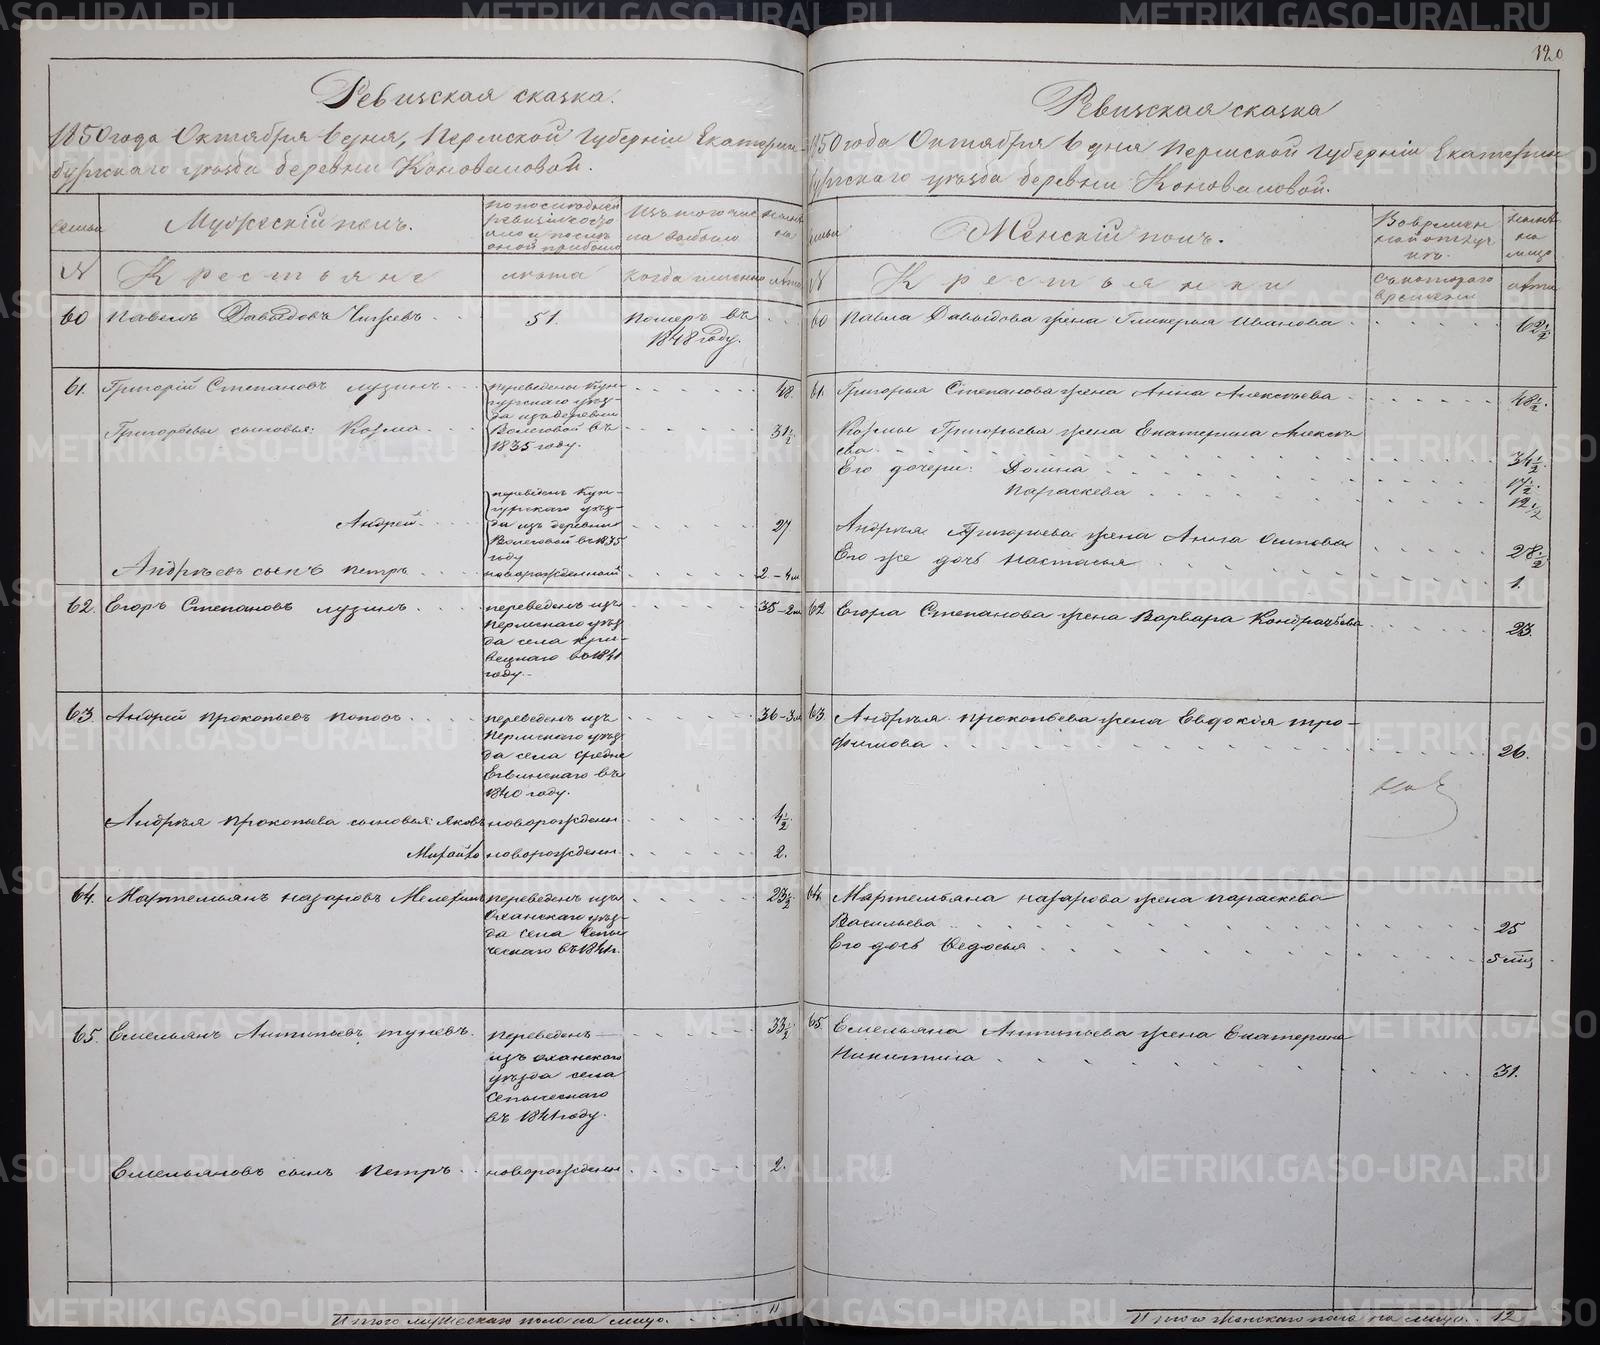 120
Ревизская сказка.
1850 года Октября 6 дня, Пермской Губернiи Екатерин-
бургскаго уѣзда деревни Коноваловой.
семьи
Мужескiй полъ.
по последней
ревизiи состо
яло и послѣ
оной прибыло
Изъ того чис
ла выбыло
нынѣ
на
№
Крестьяне
лѣта
когда именно
лѣта
60 Павелъ Давыдовъ Чигвевъ
51.
Померъ въ
1848 году.
61. Григорiй Степановъ Лузинъ
переведены Кун-
гурскаго уѣз-
да изъ деревни
Волеговой въ
1835 году.
48.
Григорьевы сыновья: Козма
31½
Андрей
переведенъ Кун-
гурскаго уѣз-
да изъ деревни
Волеговой въ 1835
году
27
Андрѣевъ сынъ Петръ
новорожденной
2 - 4 м
62. Егоръ Степановъ Лузинъ
переведенъ изъ
Пермскаго уѣз
да села Кри-
вецкаго въ 1841
году.
35 - 2 м
63. Андрей Прокопьевъ Поповъ
переведенъ изъ
Пермскаго уѣз
да села Средне
Егвинскаго въ
1840 году.
36 - 3 м
Андрѣя Прокопьева сыновья: Яковъ
новорожденн
4½
Михайло
новорожденн.
2.
64. Мартемьянъ Назаровъ Мелехинъ
переведенъ изъ
Оханскаго уѣз-
да села Сепы
ческаго въ 1841 г.
23½
65. Емельянъ Антипьевъ Туневъ.
переведенъ
изъ Оханскаго
уѣзда села
Сепыческаго
въ 1841 году.
33½
Емельяновъ сынъ Петръ
новорожденн
2.
Итого мужескаго пола на лицо.
11
Ревизская сказка
1850 года Октября 6 дня Пермской Губернiи Екатерин
бургскаго уѣзда деревни Коноваловой.
семьи
Женскiй полъ.
Во времен
ной отлуч
кѣ.
нынѣ
на
лицо
№
Крестьянки
Съ котораго
времени
лѣта
60 Павла Давыдова жена Гликерья Иванова
62½
61. Григорья Степанова жена Анна Алексѣева
48½.
Козмы Григорьева жена Екатерина Алексѣ
ева
34½
Его дочери: Домна
17½
Параскева
12½
Андрѣя Григорьева жена Анна Осипова
28½
Его же дочь Настасья
1.
62 Егора Степанова жена Варвара Кондратьева
23.
63 Андрѣя Прокопьева жена Евдокiя Тро-
фимова
26.
64 Мартемьяна Назарова жена Параскева
Васильева
25
Его дочь Ѳедосья
5 мѣц
65. Емельяна Антипьева жена Екатерина
Никитина
31.
Итого женскаго пола на лицо.
12.
METRIKI.GASO-URAL.RU